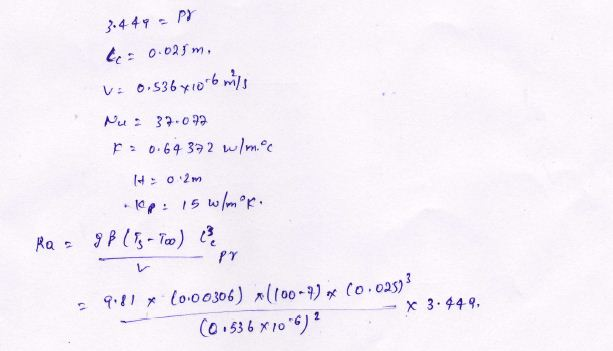 3.449 = Pr
Lc = 0.025 m.
V = 0.536 x 10^-6 m^2/s
Nu = 37.077
F = 0.64372 w/m.°c
H = 0.2m
Kp = 15 w/m°K.
Ra = gβ (Ts - T∞) L^3c / V Pr
= 9.81 x (0.00306) x (100-7) x (0.025)^3 / (0.536 x 10^-6)^2 x 3.449.